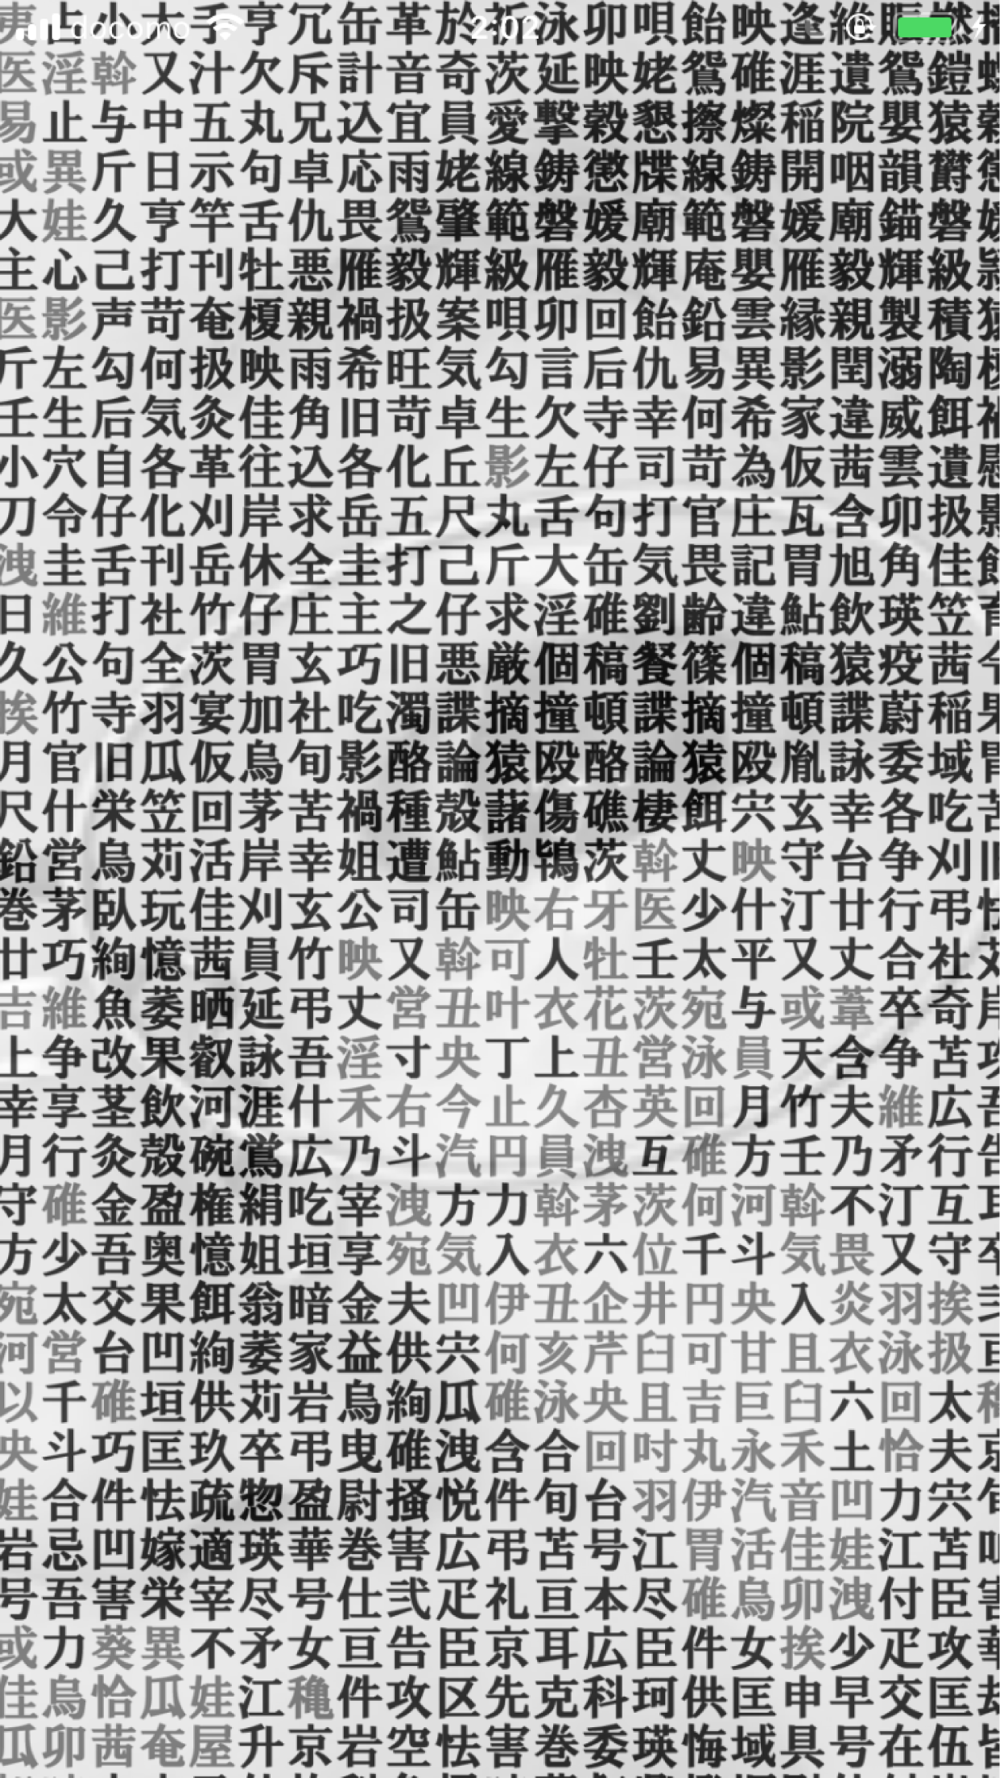 docomo 2:02
夷上小大千亨冗缶革於祈泳卯唄飴映逢維
医淫斡又汁欠斥計音奇茨延映姥鴛碓涯遺鴛鎧
易止与中五丸兄込宜員愛撃穀懇擦燦稲院嬰猿
或異斤日示句卓応雨姥線鋳懲牒線鋳開咽韻爵
大娃久亨竿舌仇畏鴛肇範磐媛廟範磐媛廟錨磐
主心己打刊牡悪雁毅輝級雁毅輝庵嬰雁毅輝級
医影声苛奄榎親禍扱案唄卯回飴鉛雲縁親製積
斤左勾何扱映雨希旺気勾言后仇易異影閏溺陶
壬生后気灸佳角旧苛卓生欠寺幸何希家違威餌
小穴自各革往込各化丘影左仔司苛為仮茜雲遺
刀令仔化刈岸求岳五尺丸舌句打官庄瓦含卯扱影
洩圭舌刊岳休全圭打己斤大缶気畏記胃旭角佳
日維打社竹仔庄主之仔求淫碓劉齢違鮎飲瑛笠育
久公句全茨胃玄巧旧悪厳個稿餐篠個稿猿疫茜
挨竹寺羽宴加社吃濁諜摘撞頓諜摘撞頓諜蔚稲果
月官旧瓜仮烏旬影酪論猿殴酪論猿殴胤詠委域冒
尺什栄笠回茅苦禍種殻藷傷礁棲餌宍玄幸各吃苦
鉛営烏苅活岸幸姐遭鮎動鴇茨斡丈映守台争刈旧
巻茅臥玩佳刈玄公司缶映右牙医少什汀廿行弔
廿巧絢憶茜員竹映又斡可人牡壬太平又丈合社
吉維魚萎晒延弔丈営丑叶衣花茨宛与或葦卒奇岸
上争改果叡詠吾淫寸央丁上丑営泳員天含争苫攻
幸享茎飲河涯什禾右今止久杏英回月竹夫維広吾
月行灸殻碗鴬広乃斗汽円員洩互碓方壬乃矛行告
守碓金盈権絹吃宰洩方力斡茅茨何河斡不汀互耳
方少吾奥憶姐垣享宛気入衣六位千斗気畏又守卒
宛太交果餌翁暗金夫凹伊丑企井円央入炎羽挨弐
河営台凹絢萎家益供宍何亥芹臼可甘且衣泳扱亘
以千碓垣供苅岩烏絢瓜碓泳央且吉巨臼六回太
央斗巧匡玖卒弔曳碓洩含合回吋丸永禾土恰夫京
娃合件怯疏惣盈尉掻悦件旬台羽伊汽音凹力宍旬
岩忌凹嫁適瑛華巻害広弔苫号江胃活佳娃江苫
号吾害栄宰尽号仕弐疋礼亘本尽碓烏卯洩付臣害
或力葵異不矛女亘告臣京耳広臣件女挨少疋攻華
佳烏恰瓜娃江穐件攻区先克科珂供匡申早交匡却
瓜卯茜奄屋升京岩空怯害巻委瑛悔域具号在伍皆